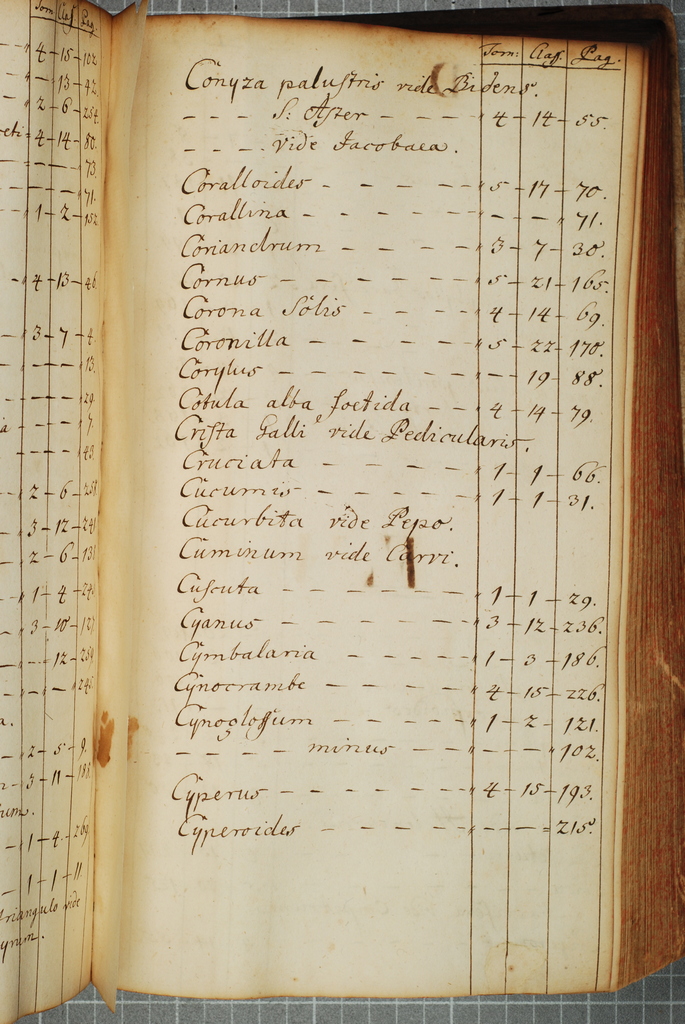 Tom: Claſſ. Pag.
4 - 15 - 102
- 13 - 42
2 - 6 - 254
4 - 14 - 80.
73.
71.
1 - 2 - 152
4 - 13 - 46
3 - 7 - 4.
13.
29
7.
43.
2 - 6 - 258
3 - 12 - 241
2 - 6 - 131
1 - 4 - 243
3 - 10 - 127
12 - 259
246.
2 - 5 - 9.
3 - 11 - 188
um.
1 - 4 - 269
1 - 1 - 11
triangulo vide
yrum.
Tom: Claſſ. Pag.
Conyza palustris vide Bidens.
- - - S: Aster - - - - 4 - 14 - 55.
- - - - vide Jacobaea.
Coralloides - - - - - " 5 - 17 - 70.
Corallina - - - - - - " - - " 71.
Coriandrum - - - - - " 3 - 7 - 30.
Cornus - - - - - - " 5 - 21 - 165.
Corona Solis - - - - 4 - 14 - 69.
Coronilla - - - - - " 5 - 22 - 170.
Corylus - - - - - - " - 19 - 88.
Cotula alba foetida - - 4 - 14 - 79.
Crista Galli vide Pedicularis.
Cruciata - - - - - 1 - 1 - 66.
Cucumis - - - - - " 1 - 1 - 31.
Cucurbita vide Pepo.
Cuminum vide Carvi.
Cuscuta - - - - - - " 1 - 1 - 29.
Cyanus - - - - - - " 3 - 12 - 236.
Cymbalaria - - - - - 1 - 3 - 186.
Cynocrambe - - - - - " 4 - 15 - 226.
Cynoglossum - - - - " 1 - 2 - 121.
- - - - - minus - - - " - - - " 102.
Cyperus - - - - - - " 4 - 15 - 193.
Cyperoides - - - - - " - - - = 215.